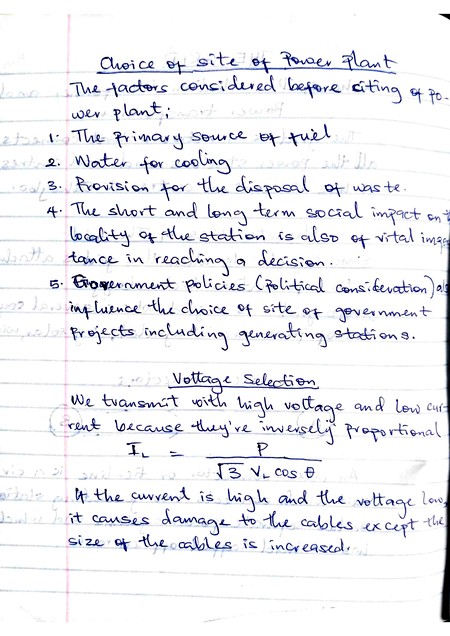 Choice of site of Power Plant
The factors considered before siting of po-
wer plant;
1. The Primary source of fuel
2. Water for cooling
3. Provision for the disposal of waste.
4. The short and long term social impact on
locality of the station is also of vital
tance in reaching a decision.
5. Government policies (political consideration)
influence the choice of site of government
projects including generating stations.
Voltage Selection
We transmit with high voltage and low cur-
rent because they're inversely proportional
I_L = P / √3 V_L cos θ
If the current is high and the voltage low,
it causes damage to the cables except the
size of the cables is increased.